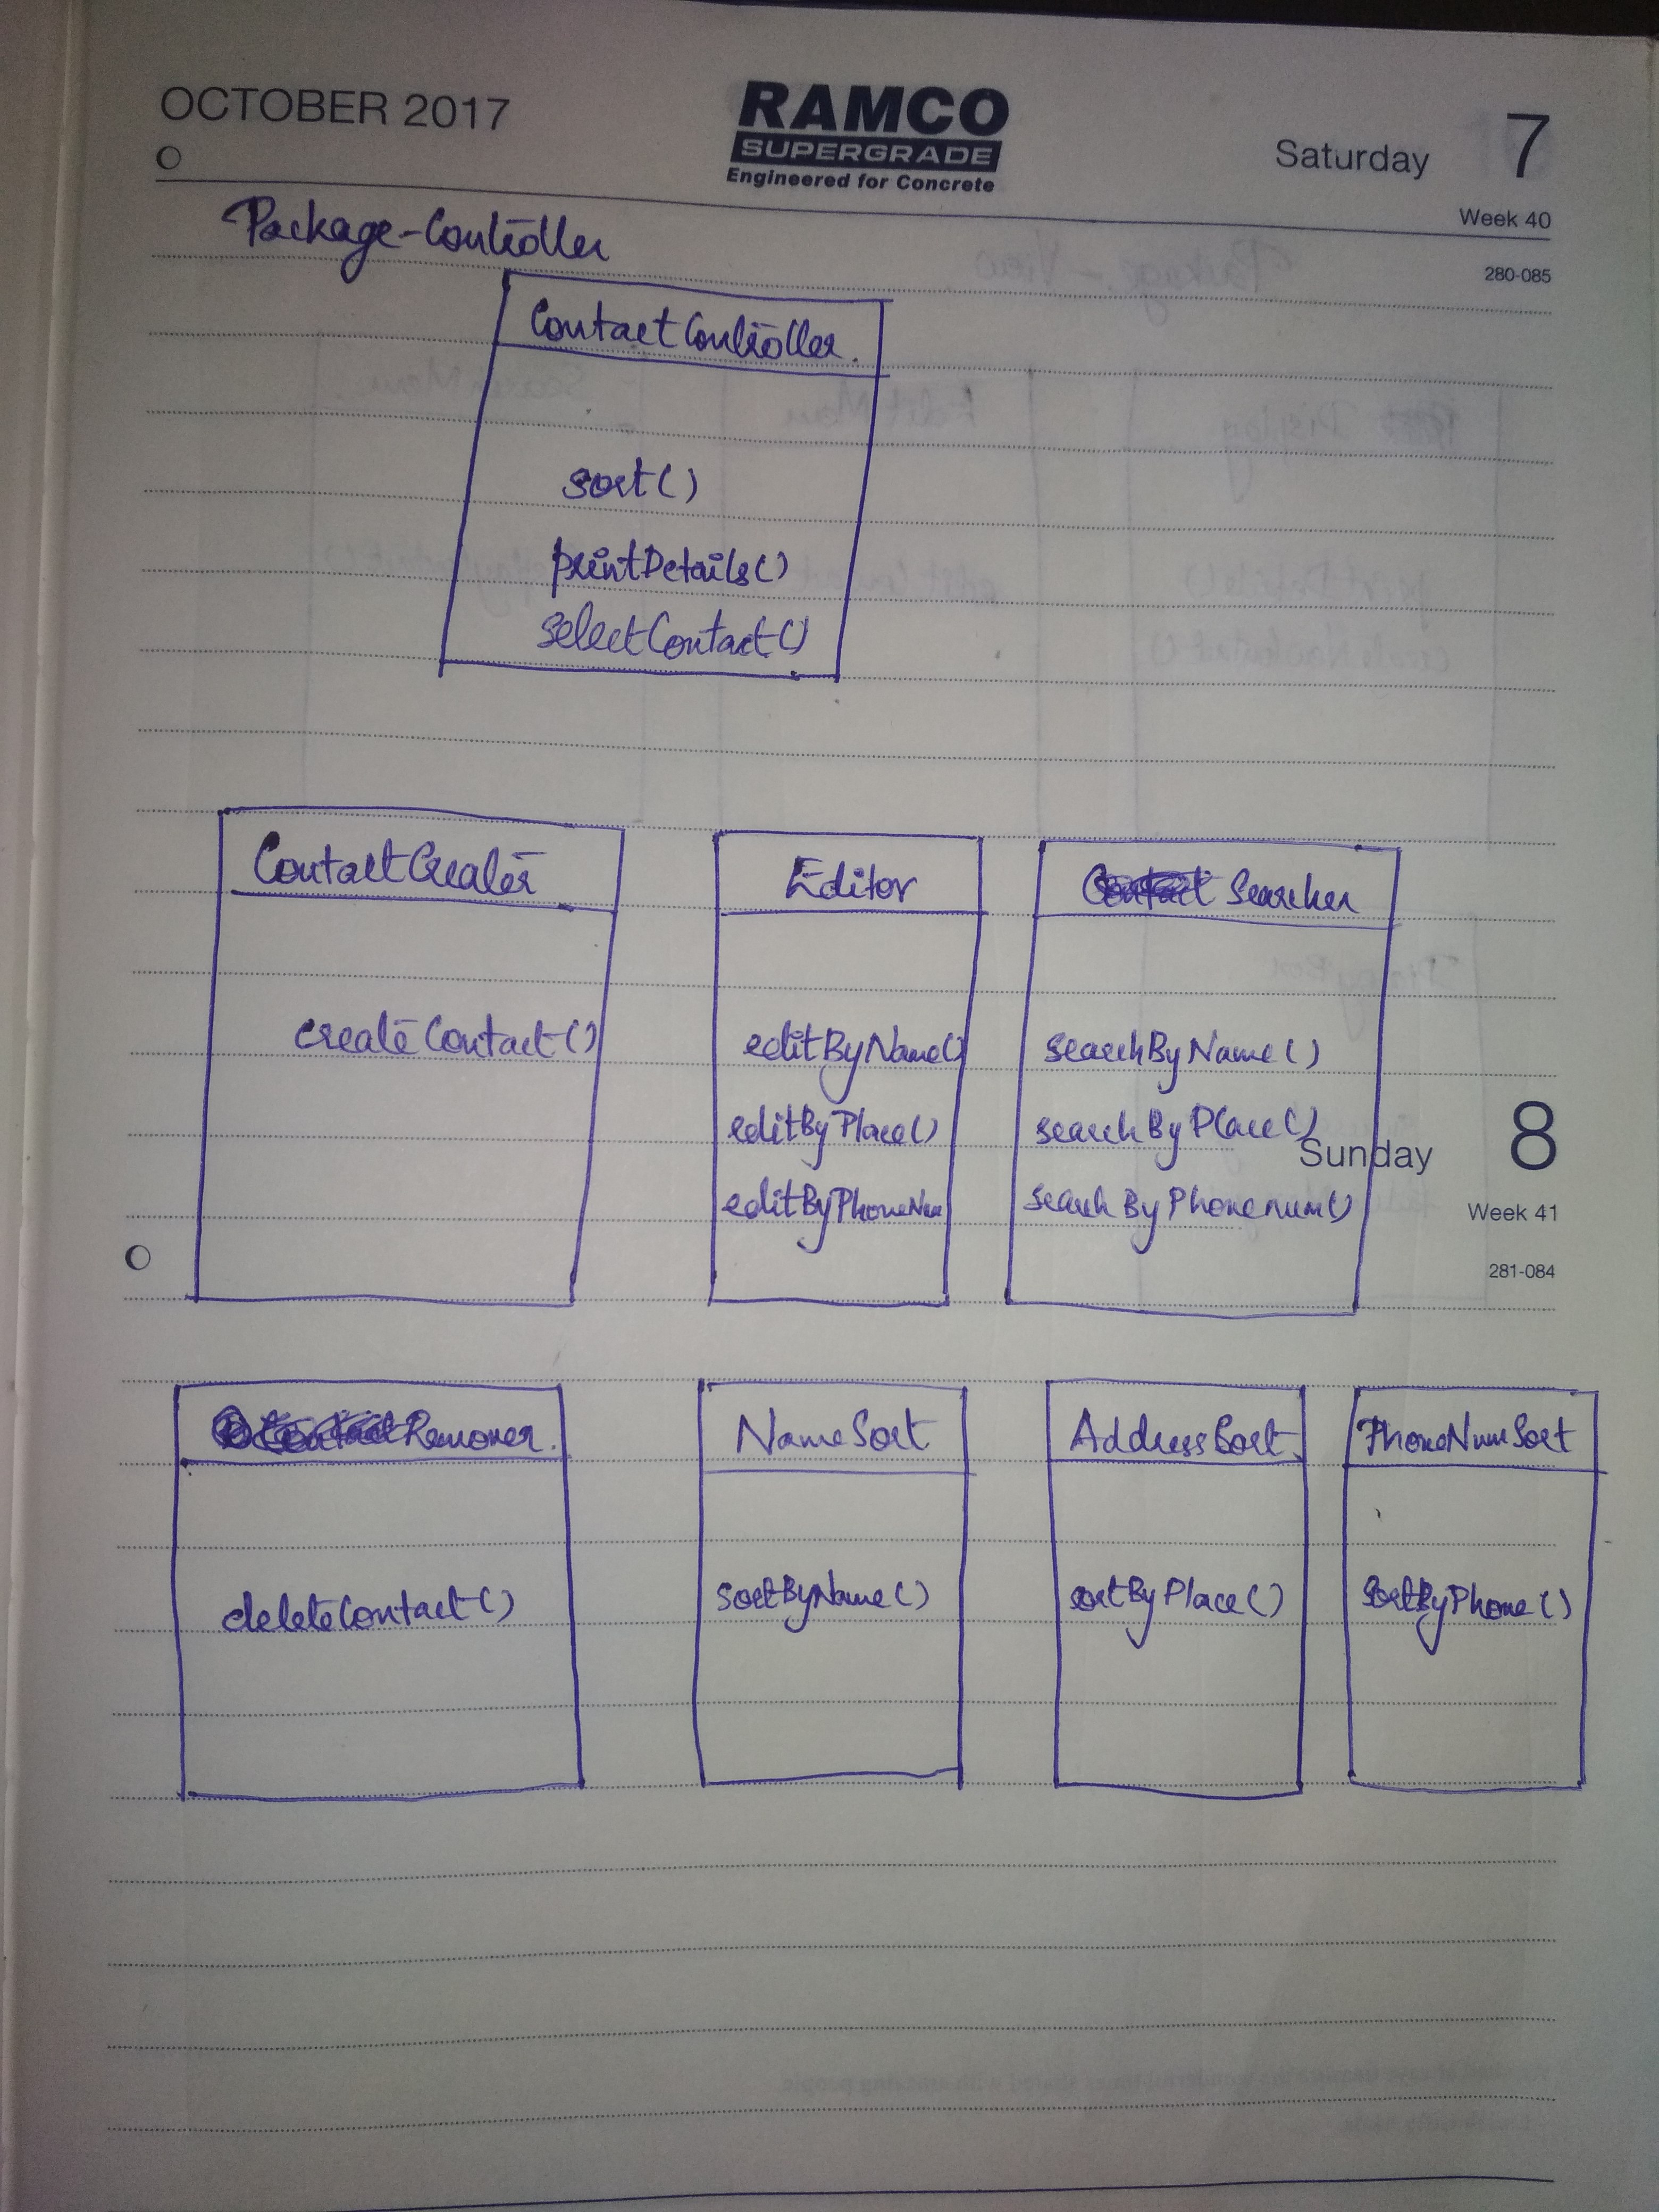 OCTOBER 2017
RAMCO
SUPERGRADE
Engineered for Concrete
Saturday 7
Week 40
280-085
Package-Controller
ContactController.
sort()
printDetails()
selectContact()
ContactCreater
createContact()
Editor
editByName()
editByPlace()
editByPhoneNum
Searcher
searchByName()
searchByPlace()
searchByPhonenum()
Sunday 8
Week 41
281-084
Remover.
deleteContact()
NameSort
sortByName()
AddressSort
sortByPlace()
PhoneNumSort
sortByPhone()